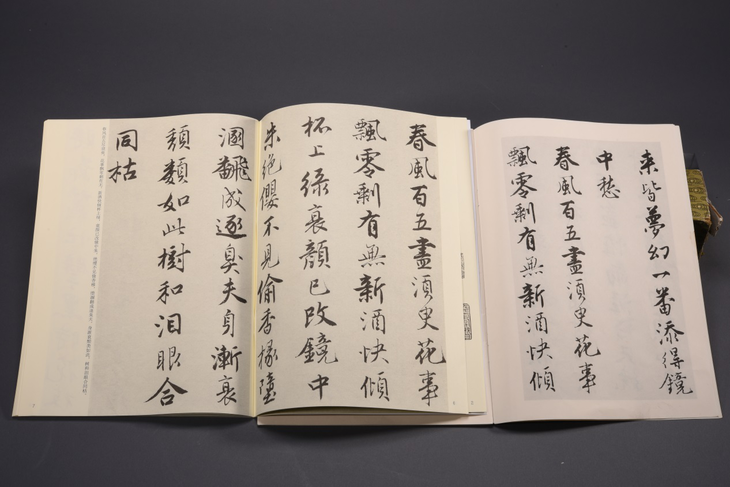 来皆夢幻一番添得鏡
中愁
春風百五盡湏臾花事
飄零剩有無新酒快傾
春風百五盡湏臾花事
飄零剩有無新酒快傾
杯上緑衰顔已改鏡中
朱絶纓不見偷香掾墮
溷飜成逐臭夫身漸衰
頹類如此樹和淚眼合
同枯